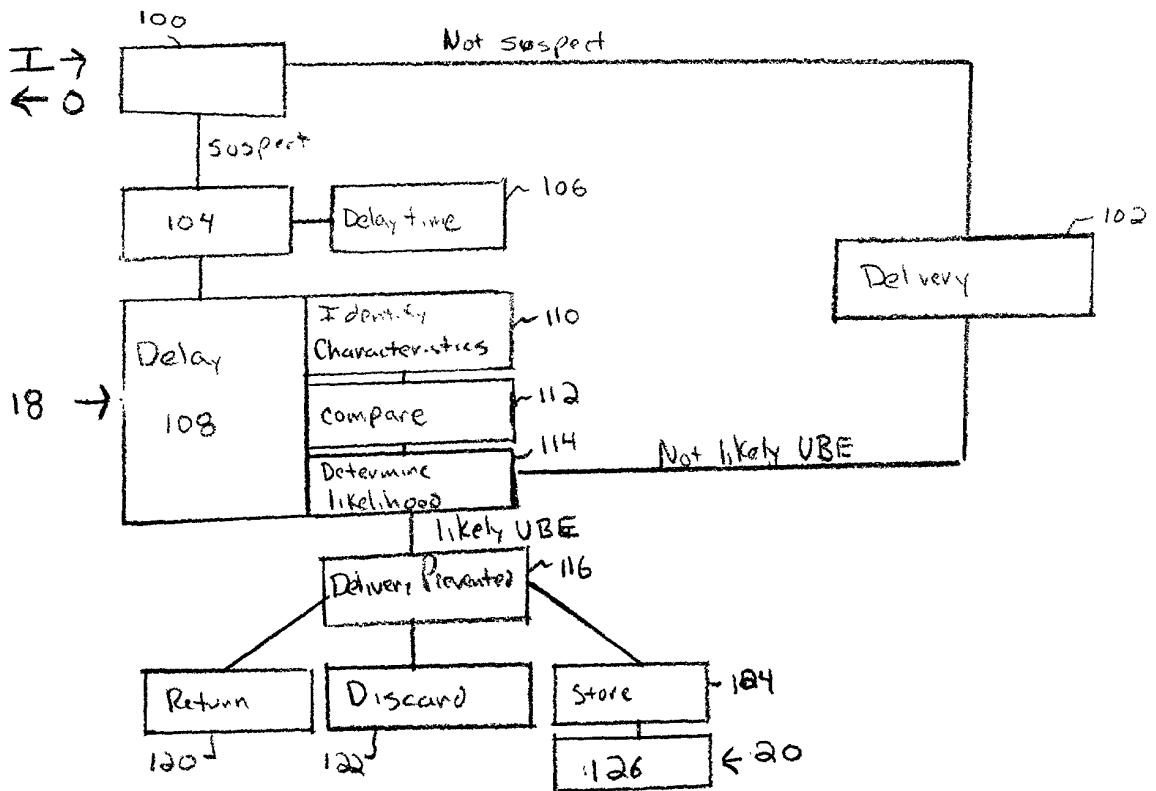 100
Not suspect
I →
← O
suspect
104
Delay time
106
102
Delivery
Identify
Characteristics
110
Delay
108
18 →
compare
112
114
Determine
likelihood
Not likely UBE
likely UBE
Delivery Prevented
116
Return
Discard
Store
124
120
122
126
← 20